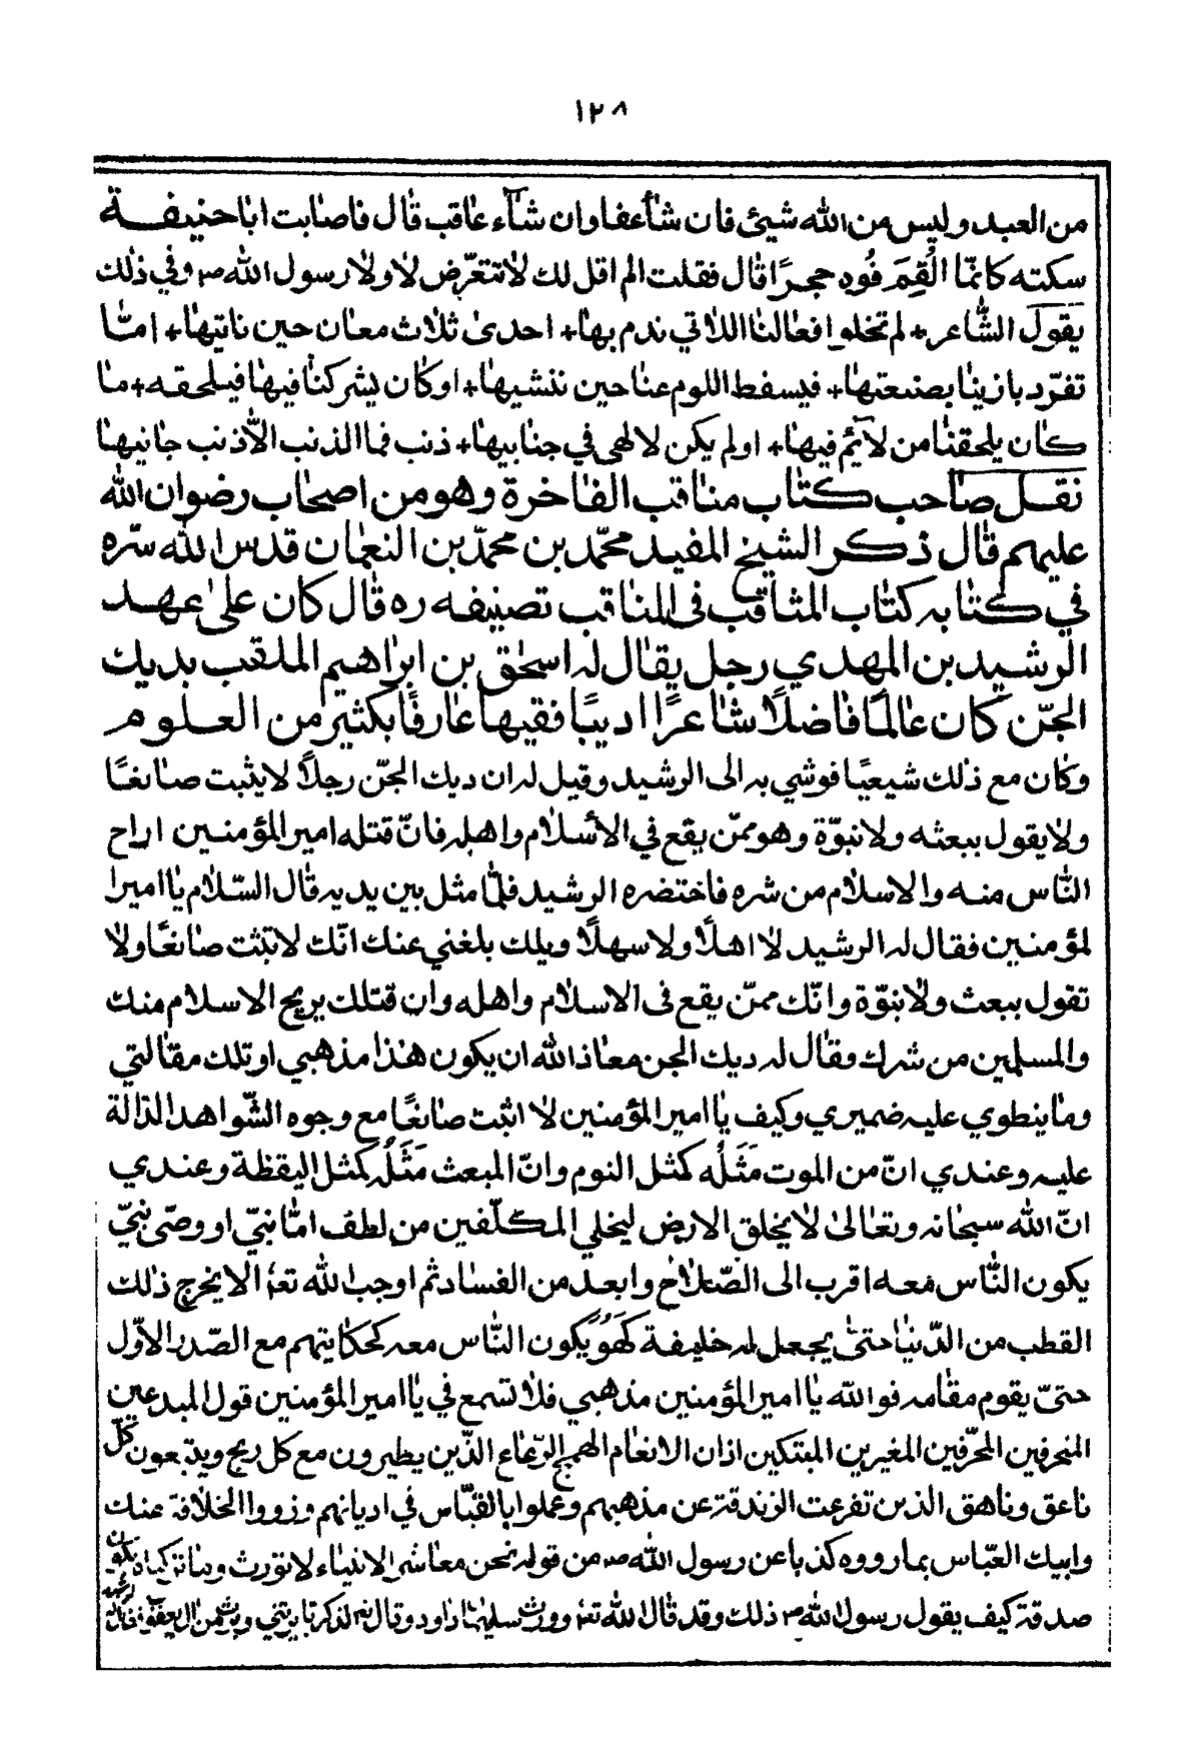 ١٢٨
من العبد وليس من الله شيئ فان شاء عفا وان شآء عاقب قال فاصابت ابا حنيفة
سكته كانمّا الُقِمَ فُوهِ حجرًا قال فقلت الم اقل لك لا تتعرّض لاولاد رسول الله ص وفي ذلك
يقول الشاعر+ لم تخلوا فعالنا اللاتي ندم بها+ احدى ثلاث معان حين ناتيها+ امّا
تفرّد بازينا بصنعتها+ فيسقط اللوم عنا حين ننشيها+ اوكان يشركنا فيها فيلحقه+ ما
كان يلحقنا من لآئم فيها+ اولم يكن لالهى في جنابيها+ ذنب فما الذنب الّا ذنب جانيها
نقل صاحب كتاب مناقب الفاخرة وهو من اصحاب رضوان الله
عليهم قال ذكر الشيخ المفيد محمّد بن محمدّ بن النعمان قدس الله سرّه
في كتابه كتاب المثاقب فى المناقب تصنيفه ره قال كان على عهد
الرشيد بن المهدي رجل يقال له اسحق بن ابراهيم الملقب بديك
الجنّ كان عالمًا فاضلًا شاعرًا اديبًا فقيهًا عارفًا بكثير من العلوم
وكان مع ذلك شيعيًا فوشي به الى الرشيد وقيل له ان ديك الجنّ رجلًا لا يثبت صانعًا
ولا يقول ببعثه ولا نبوّة وهو ممّن يقع في الاسلام واهله فانّ قتله امير المؤمنين اراح
النّاس منه والاسلام من شره فاحتضره الرشيد فلمّا مثل بين يديه قال السّلام يا امير ا
لمؤمنين فقال له الرشيد لا اهلًا ولا سهلًا ويلك بلغني عنك انّك لا تثبت صانعًا ولا
تقول ببعث ولا نبوّة وانّك ممّن يقع فى الاسلام واهله وان قتلك يريح الاسلام منك
والمسلمين من شرك فقال له ديك الجن معاذ الله ان يكون هذا مذهبي او تلك مقالتي
وما ينطوي عليه ضميري وكيف يا امير المؤمنين لا اثبت صانعًا مع وجوه الشّواهد الدّالة
عليه وعندي انّ من الموت مَثَلُه كمثل النوم وانّ المبعث مَثَلُه كمثل اليقظة وعندي
انّ الله سبحانه وتعالى لا يخلق الارض ليخلي المكلّفين من لطف امّا نبيّ او وصّى نبيّ
يكون النّاس معه اقرب الى الصّلاح وابعد من الفساد ثم اوجب الله تعم الا يخرج ذلك
القطب من الدّنيا حتىّ يجعل له خليفة كَهُوَ يكون النّاس معه كحكايتهم مع الصّدر الاوّل
حتىّ يقوم مقامه فوالله يا امير المؤمنين مذهبي فلا تسمع في يا امير المؤمنين قول المبدعين
المنحرفين المحرّفين المغيرين المبتكين اذان الانعام الهمج الرّعاع الذّين يطيرون مع كل ريح ويتبعون كلّ
ناعق وناهق الذين تفرعت الزندقة عن مذهبهم وعملوا بالقيّاس في اديانهم وزووا الخلافة عنك
وابيك العبّاس بما رووه كذبا عن رسول الله ص من قوله نحن معاشر الانبياء لا نورث وما تركناه يكون
صدقة كيف يقول رسول الله ص ذلك وقد قال الله تعم وورث سليمان داود وقال